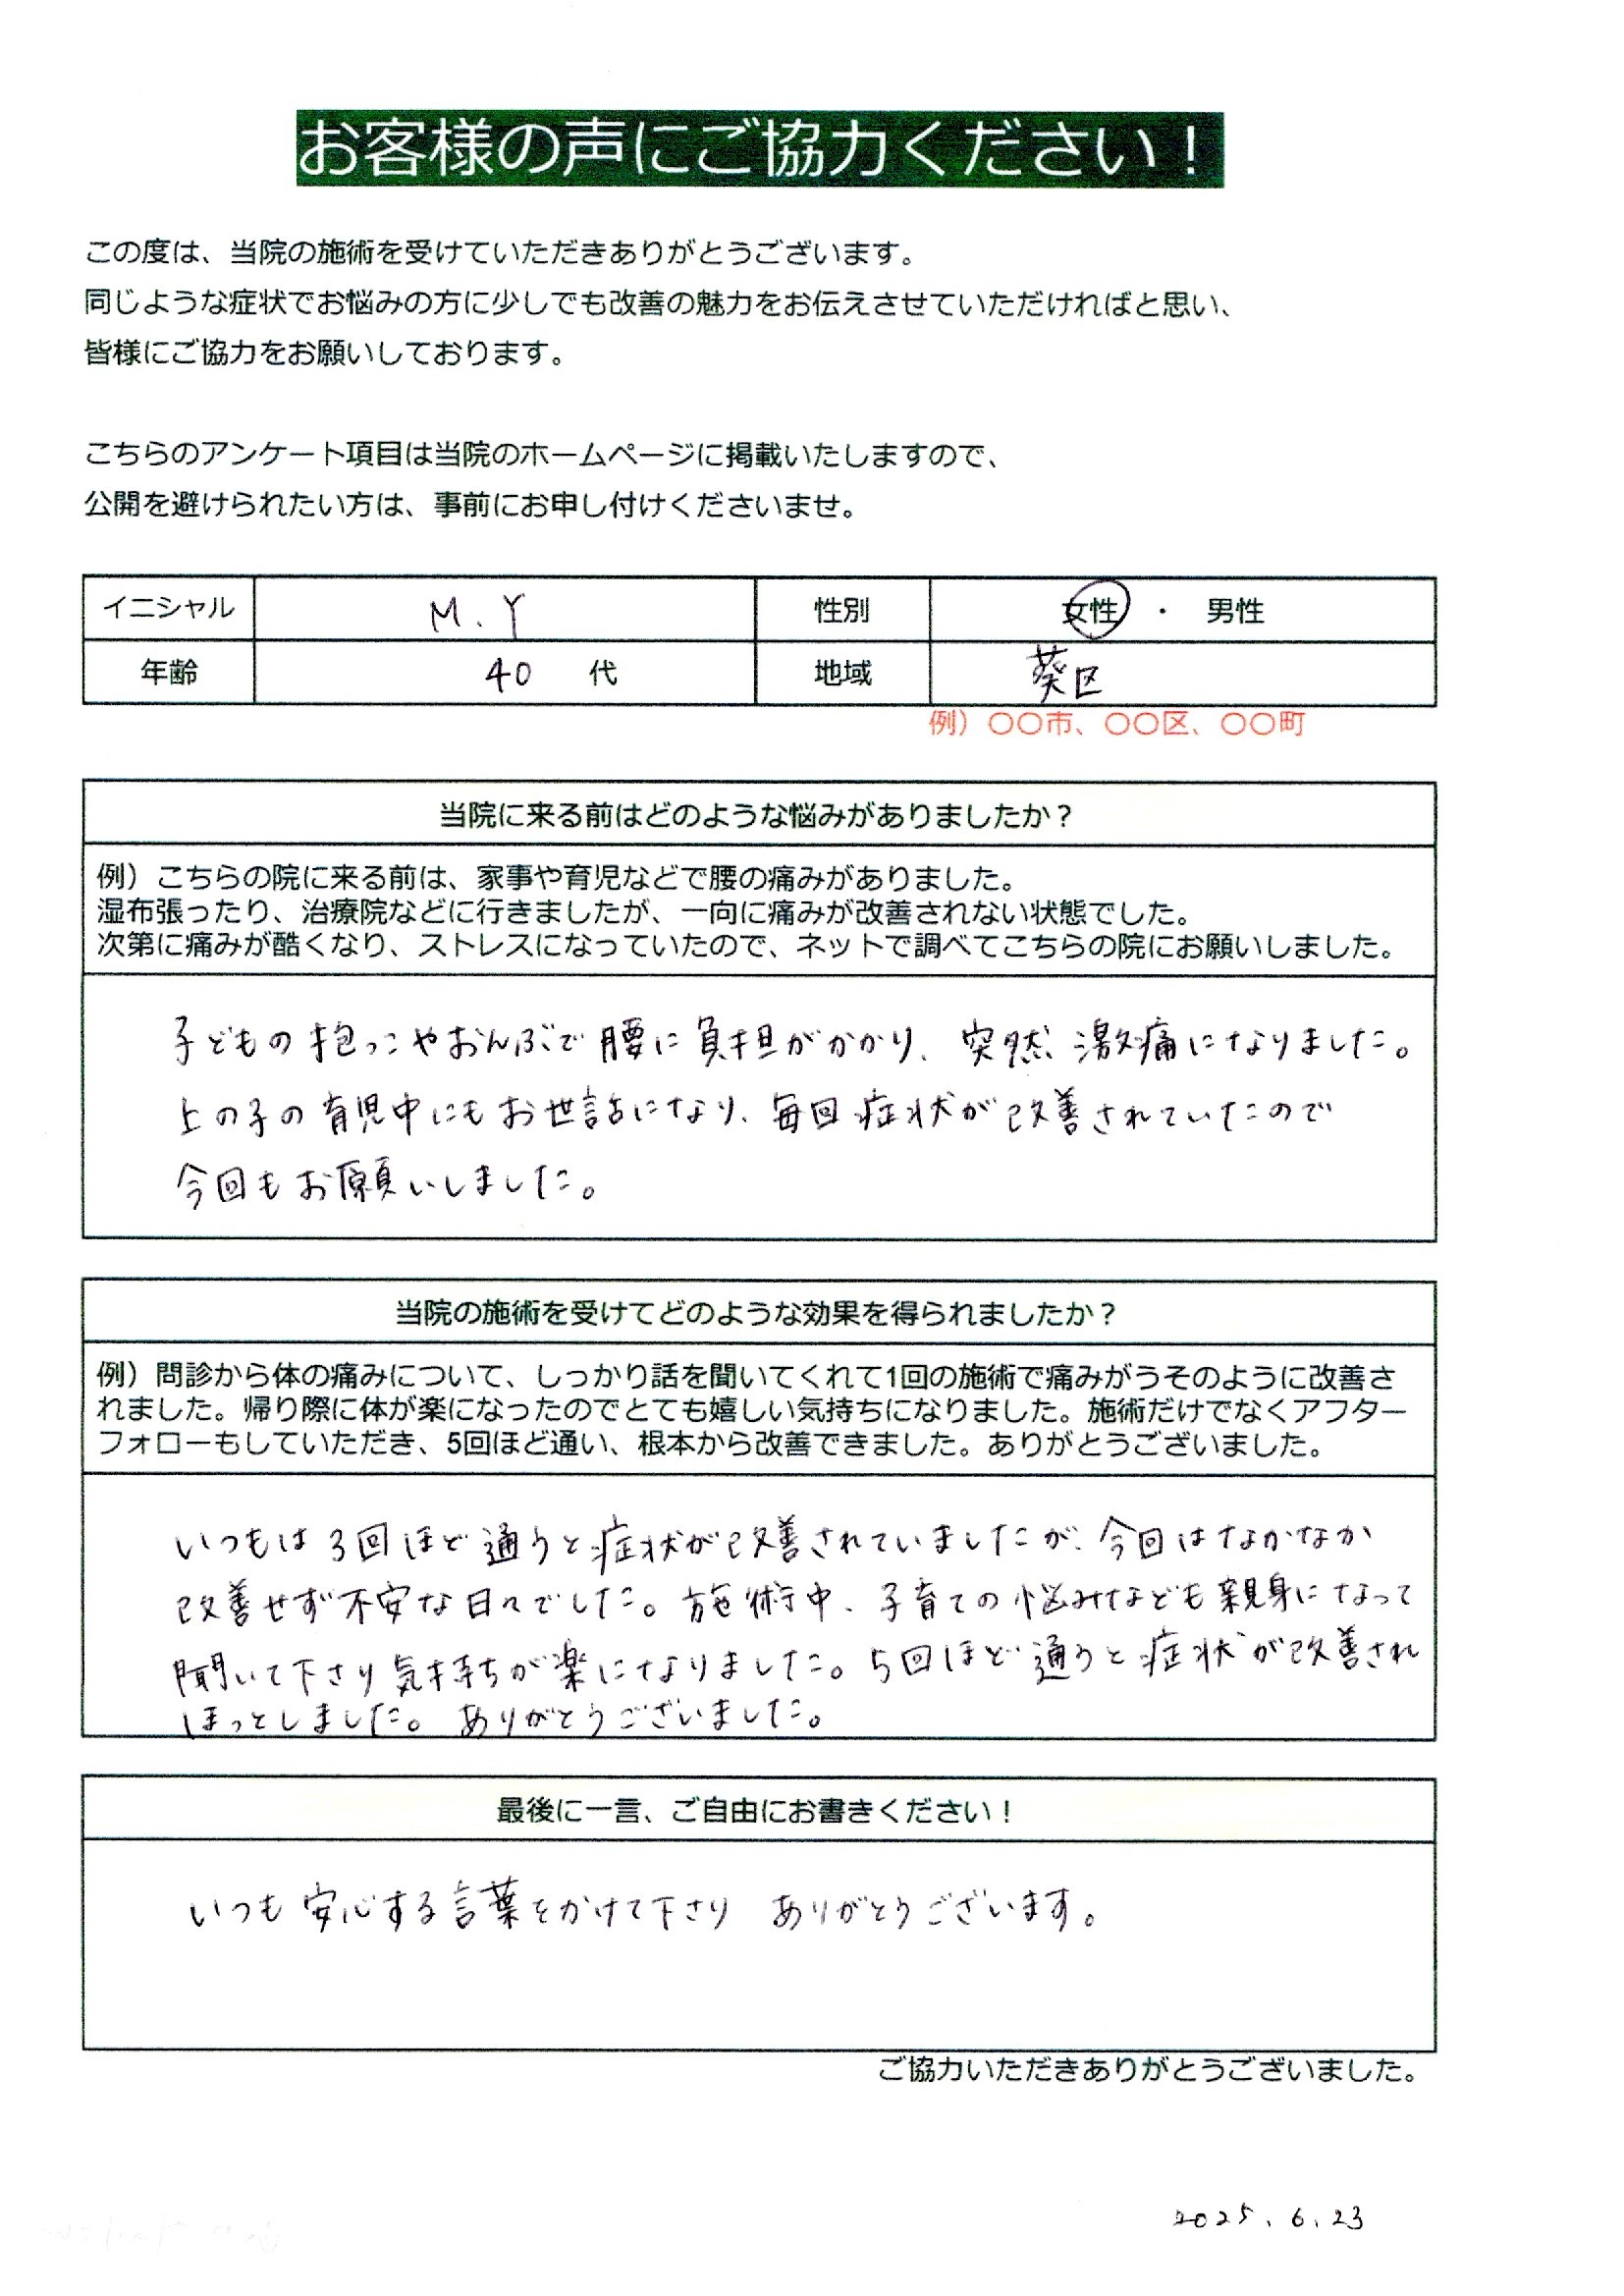 お客様の声にご協力ください！
この度は、当院の施術を受けていただきありがとうございます。
同じような症状でお悩みの方に少しでも改善の魅力をお伝えさせていただければと思い、
皆様にご協力をお願いしております。
こちらのアンケート項目は当院のホームページに掲載いたしますので、
公開を避けられたい方は、事前にお申し付けくださいませ。
イニシャル M.Y 性別 女性 ・ 男性
年齢 40 代 地域 葵区
例）〇〇市、〇〇区、〇〇町
当院に来る前はどのような悩みがありましたか？
例）こちらの院に来る前は、家事や育児などで腰の痛みがありました。
湿布張ったり、治療院などに行きましたが、一向に痛みが改善されない状態でした。
次第に痛みが酷くなり、ストレスになっていたので、ネットで調べてこちらの院にお願いしました。
子どもの抱っこやおんぶで腰に負担がかかり、突然、激痛になりました。
上の子の育児中にもお世話になり、毎回症状が改善されていたので
今回もお願いしました。
当院の施術を受けてどのような効果を得られましたか？
例）問診から体の痛みについて、しっかり話を聞いてくれて1回の施術で痛みがうそのように改善さ
れました。帰り際に体が楽になったのでとても嬉しい気持ちになりました。施術だけでなくアフター
フォローもしていただき、5回ほど通い、根本から改善できました。ありがとうございました。
いつもは3回ほど通うと症状が改善されていましたが、今回はなかなか
改善せず不安な日々でした。施術中、子育ての悩みなども親身になって
聞いて下さり気持ちが楽になりました。5回ほど通うと症状が改善され
ほっとしました。ありがとうございました。
最後に一言、ご自由にお書きください！
いつも安心する言葉をかけて下さり ありがとうございます。
ご協力いただきありがとうございました。
2025.6.23